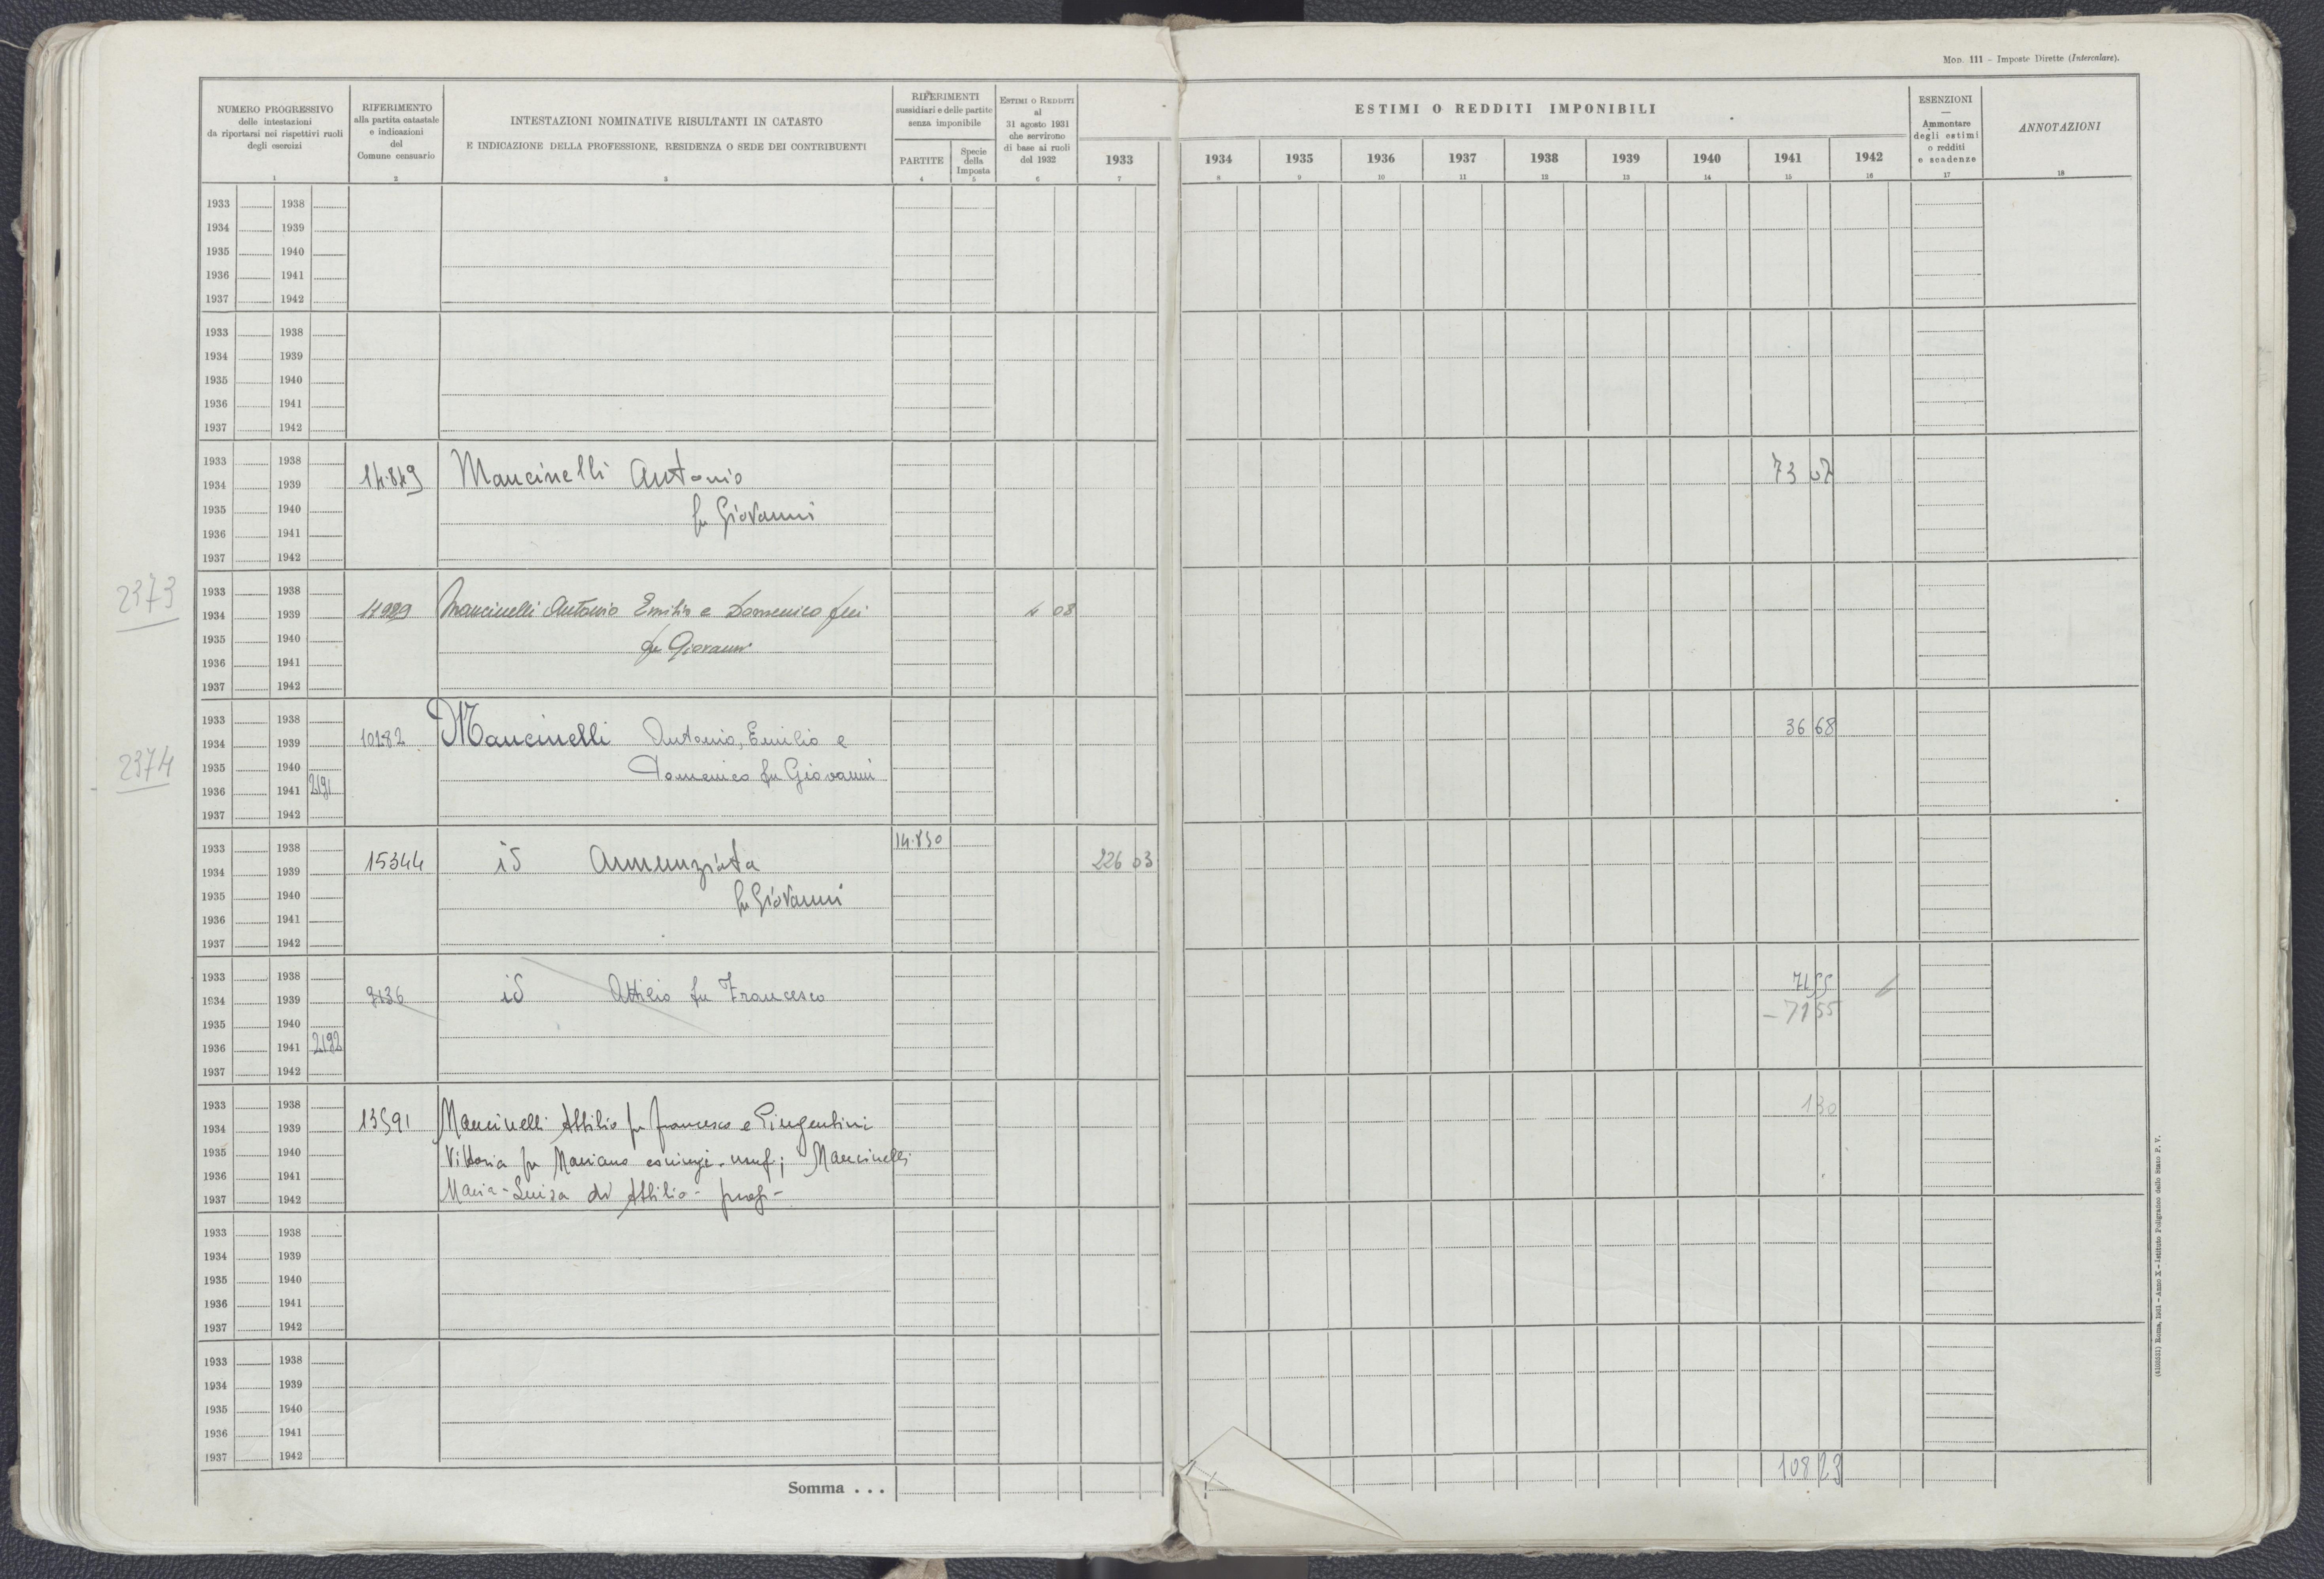 Mod. 111 – Imposte Dirette (Intercalare).
NUMERO PROGRESSIVO
delle intestazioni
da riportarsi nei rispettivi ruoli
degli esercizi
1
RIFERIMENTO
alla partita catastale
e indicazioni
del
Comune censuario
2
INTESTAZIONI NOMINATIVE RISULTANTI IN CATASTO
E INDICAZIONE DELLA PROFESSIONE, RESIDENZA O SEDE DEI CONTRIBUENTI
3
RIFERIMENTI
sussidiari e delle partite
senza imponibile
PARTITE
4
Specie
della
Imposta
5
ESTIMI O REDDITI
al
31 agosto 1931
che servirono
di base ai ruoli
del 1932
6
ESTIMI O REDDITI IMPONIBILI
1933 1934 1935 1936 1937 1938 1939 1940 1941 1942
7 8 9 10 11 12 13 14 15 16
ESENZIONI
—
Ammontare
degli estimi
o redditi
e scadenze
17
ANNOTAZIONI
18
1933 1938
1934 1939
1935 1940
1936 1941
1937 1942
1933 1938
1934 1939
1935 1940
1936 1941
1937 1942
1933 1938
1934 1939 14.849 Mancinelli Antonio 73 07
1935 1940 fu Giovanni
1936 1941
1937 1942
2373
1933 1938
1934 1939 Mancinelli Antonio Emilio e Domenico 4 08
1935 1940 fu Giovanni
1936 1941
1937 1942
2374
1933 1938
1934 1939 10282 Mancinelli Antonio, Emilio e 36 68
1935 1940 Domenico fu Giovanni
1936 1941 2191
1937 1942
1933 1938 14.850
1934 1939 15344 id Annunziata 226 03
1935 1940 fu Giovanni
1936 1941
1937 1942
1933 1938
1934 1939 9136 id Attilio fu Francesco 71 55
1935 1940 – 71 55
1936 1941 2192
1937 1942
1933 1938 1 30
1934 1939 13591 Mancinelli Attilio fu Francesco e Pingentini
1935 1940 Vittoria fu Mariano coniugi - usuf; Mancinelli
1936 1941
1937 1942 Maria-Luisa di Attilio - prop -
1933 1938
1934 1939
1935 1940
1936 1941
1937 1942
1933 1938
1934 1939
1935 1940
1936 1941
1937 1942
Somma . . . 108 23
(4105331) Roma, 1931 – Anno X – Istituto Poligrafico dello Stato P. V.